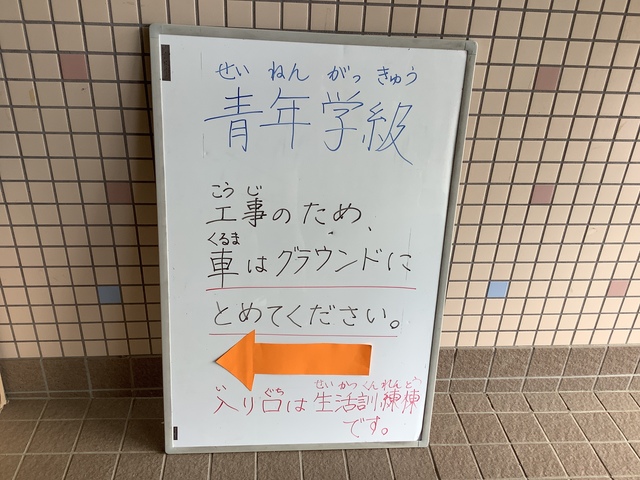 せいねんがっきゅう
青年学級
こうじ
工事のため、
くるま
車はグラウンドに
とめてください。
いぐちせいかつくんれんとう
入り口は生活訓練棟
です。